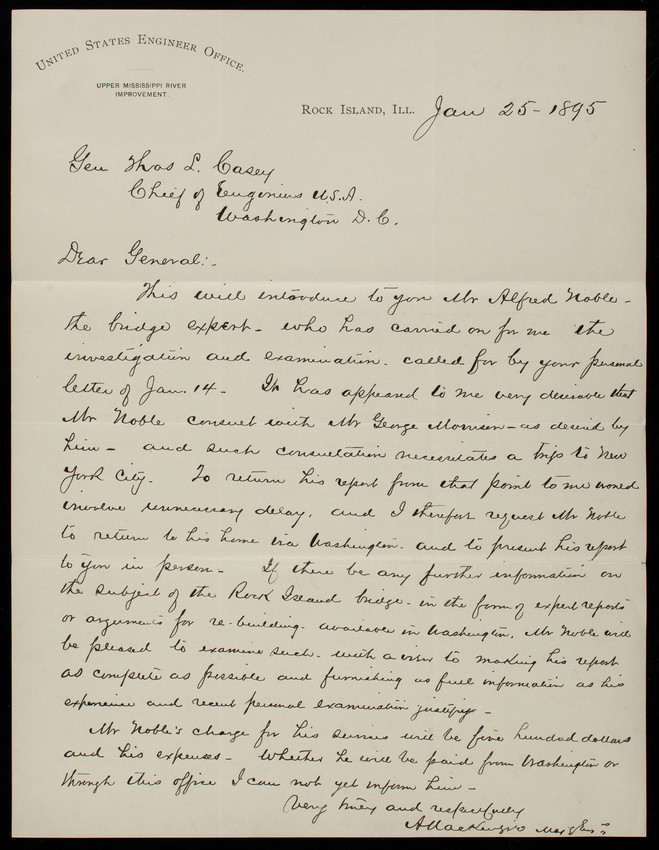 UNITED STATES ENGINEER OFFICE.
UPPER MISSISSIPPI RIVER
IMPROVEMENT.
ROCK ISLAND, ILL. Jan 25 - 1895
Gen Thos L. Casey
Chief of Engineers U.S.A.
Washington D.C.
Dear General:-
This will introduce to you Mr Alfred Noble -
the bridge expert - who has carried on for me the
investigation and examination - called for by your personal
letter of Jan. 14 - It has appeared to me very desirable that
Mr Noble consult with Mr George Morrison - as desired by
him - and such consultation necessitates a trip to New
York City. To return his report from that point to me would
involve unnecessary delay, and I therefore request Mr Noble
to return to his home via Washington - and to present his report
to you in person - If there be any further information on
the subject of the Rock Island bridge - in the form of expert reports
or arguments for re-building - available in Washington, Mr Noble will
be pleased to examine such - with a view to making his report
as complete as possible and furnishing as full information as his
experience and recent personal examination justify -
Mr Noble's charge for his services will be five hundred dollars
and his expenses - Whether he will be paid from Washington or
through this office I can not yet inform him -
Very truly and respectfully
A Mackenzie Maj Engrs